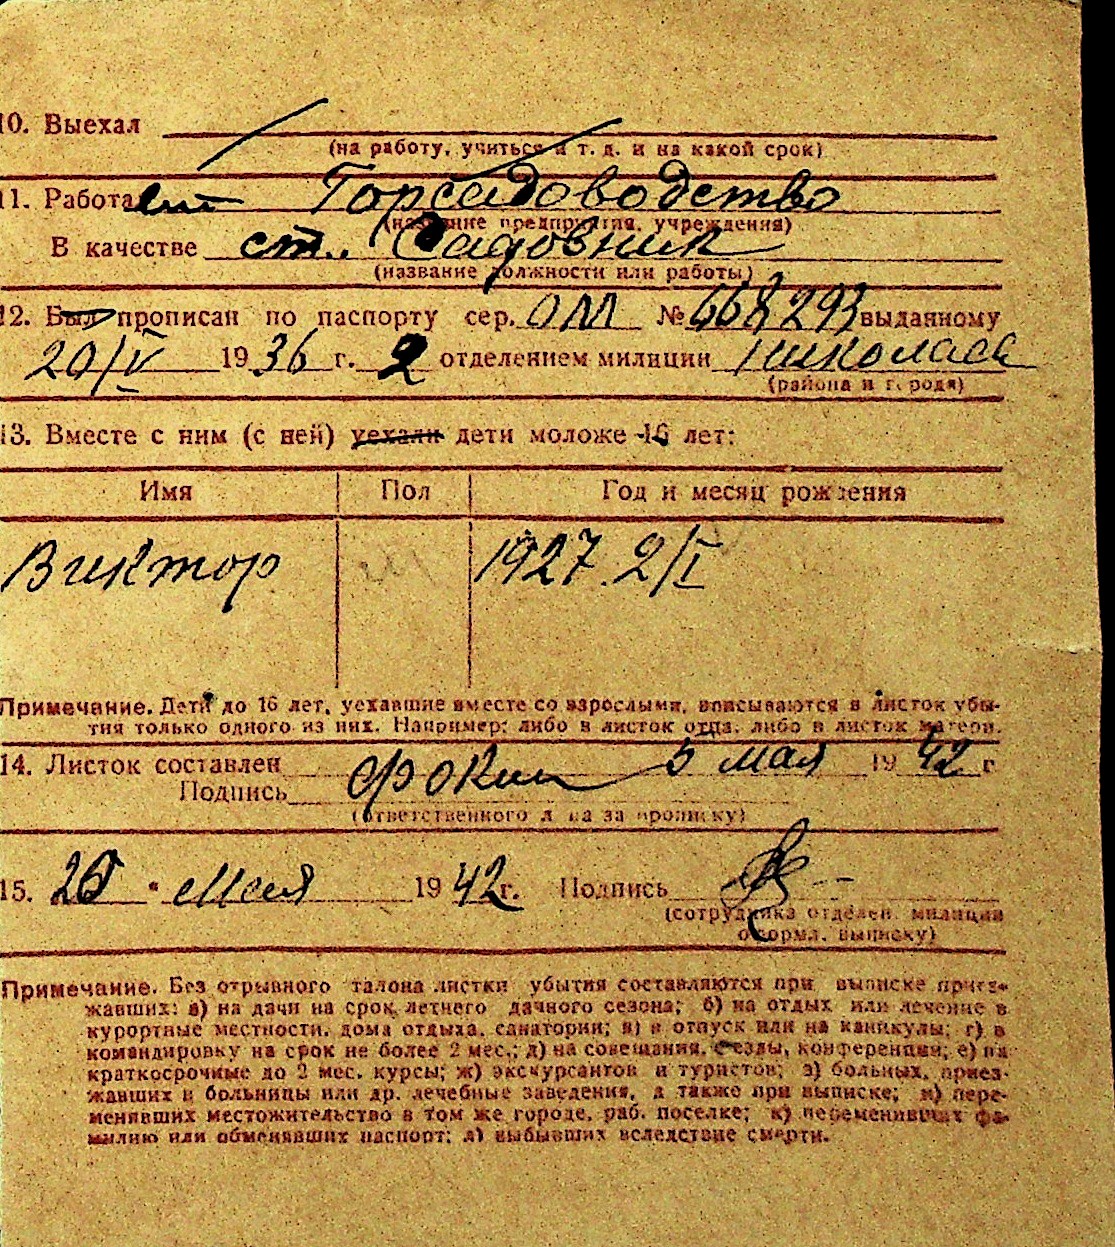 10. Выехал
(на работу, учиться и т. д. и на какой срок)
11. Работает Горсадоводство
(название предприятия, учреждения)
В качестве ст. Садовник
(название должности или работы)
12. Был прописан по паспорту сер. ОМ № 668293 выданному
20/IV 1936 г. 2 отделением милиции Николаев
(района и города)
13. Вместе с ним (с ней) уехали дети моложе 16 лет:
Имя Пол Год и месяц рождения
Виктор 1927. 2/I
Примечание. Дети до 16 лет, уехавшие вместе со взрослыми, вписываются в листок убы-
тия только одного из них. Например: либо в листок отца, либо в листок матери.
14. Листок составлен 5 мая 1942 г
Подпись
(ответственного лица за прописку)
15. мая 1942 г. Подпись
(сотрудника отделен. милиции
оформл. выписку)
Примечание. Без отрывного талона листки убытия составляются при выписке приез-
жавших: а) на дачи на срок летнего дачного сезона; б) на отдых или лечение в
курортные местности, дома отдыха, санатории; в) в отпуск или на каникулы; г) в
командировку на срок не более 2 мес.; д) на совещания, съезды, конференции; е) на
краткосрочные до 2 мес. курсы; ж) экскурсантов и туристов; з) больных, приез-
жавших в больницы или др. лечебные заведения, а также при выписке; и) пере-
менявших местожительство в том же городе, раб. поселке; к) переменивших фа-
милию или обменявших паспорт; л) выбывших вследствие смерти.